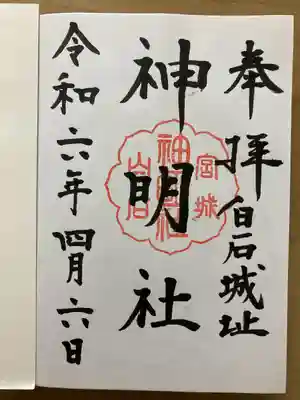 奉拝
白石城址
神明社
令和六年四月六日
宮城
神明社